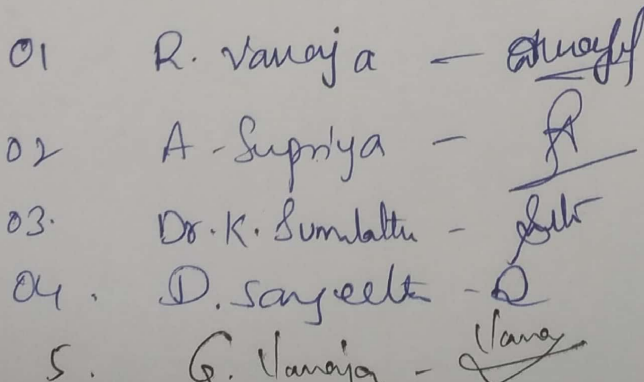 01 R. Vanaja -
02 A - Supriya -
03. Dr. K. Sumalatha -
04. D. Sangeetha -
5. G. Vanaja - Vanaj